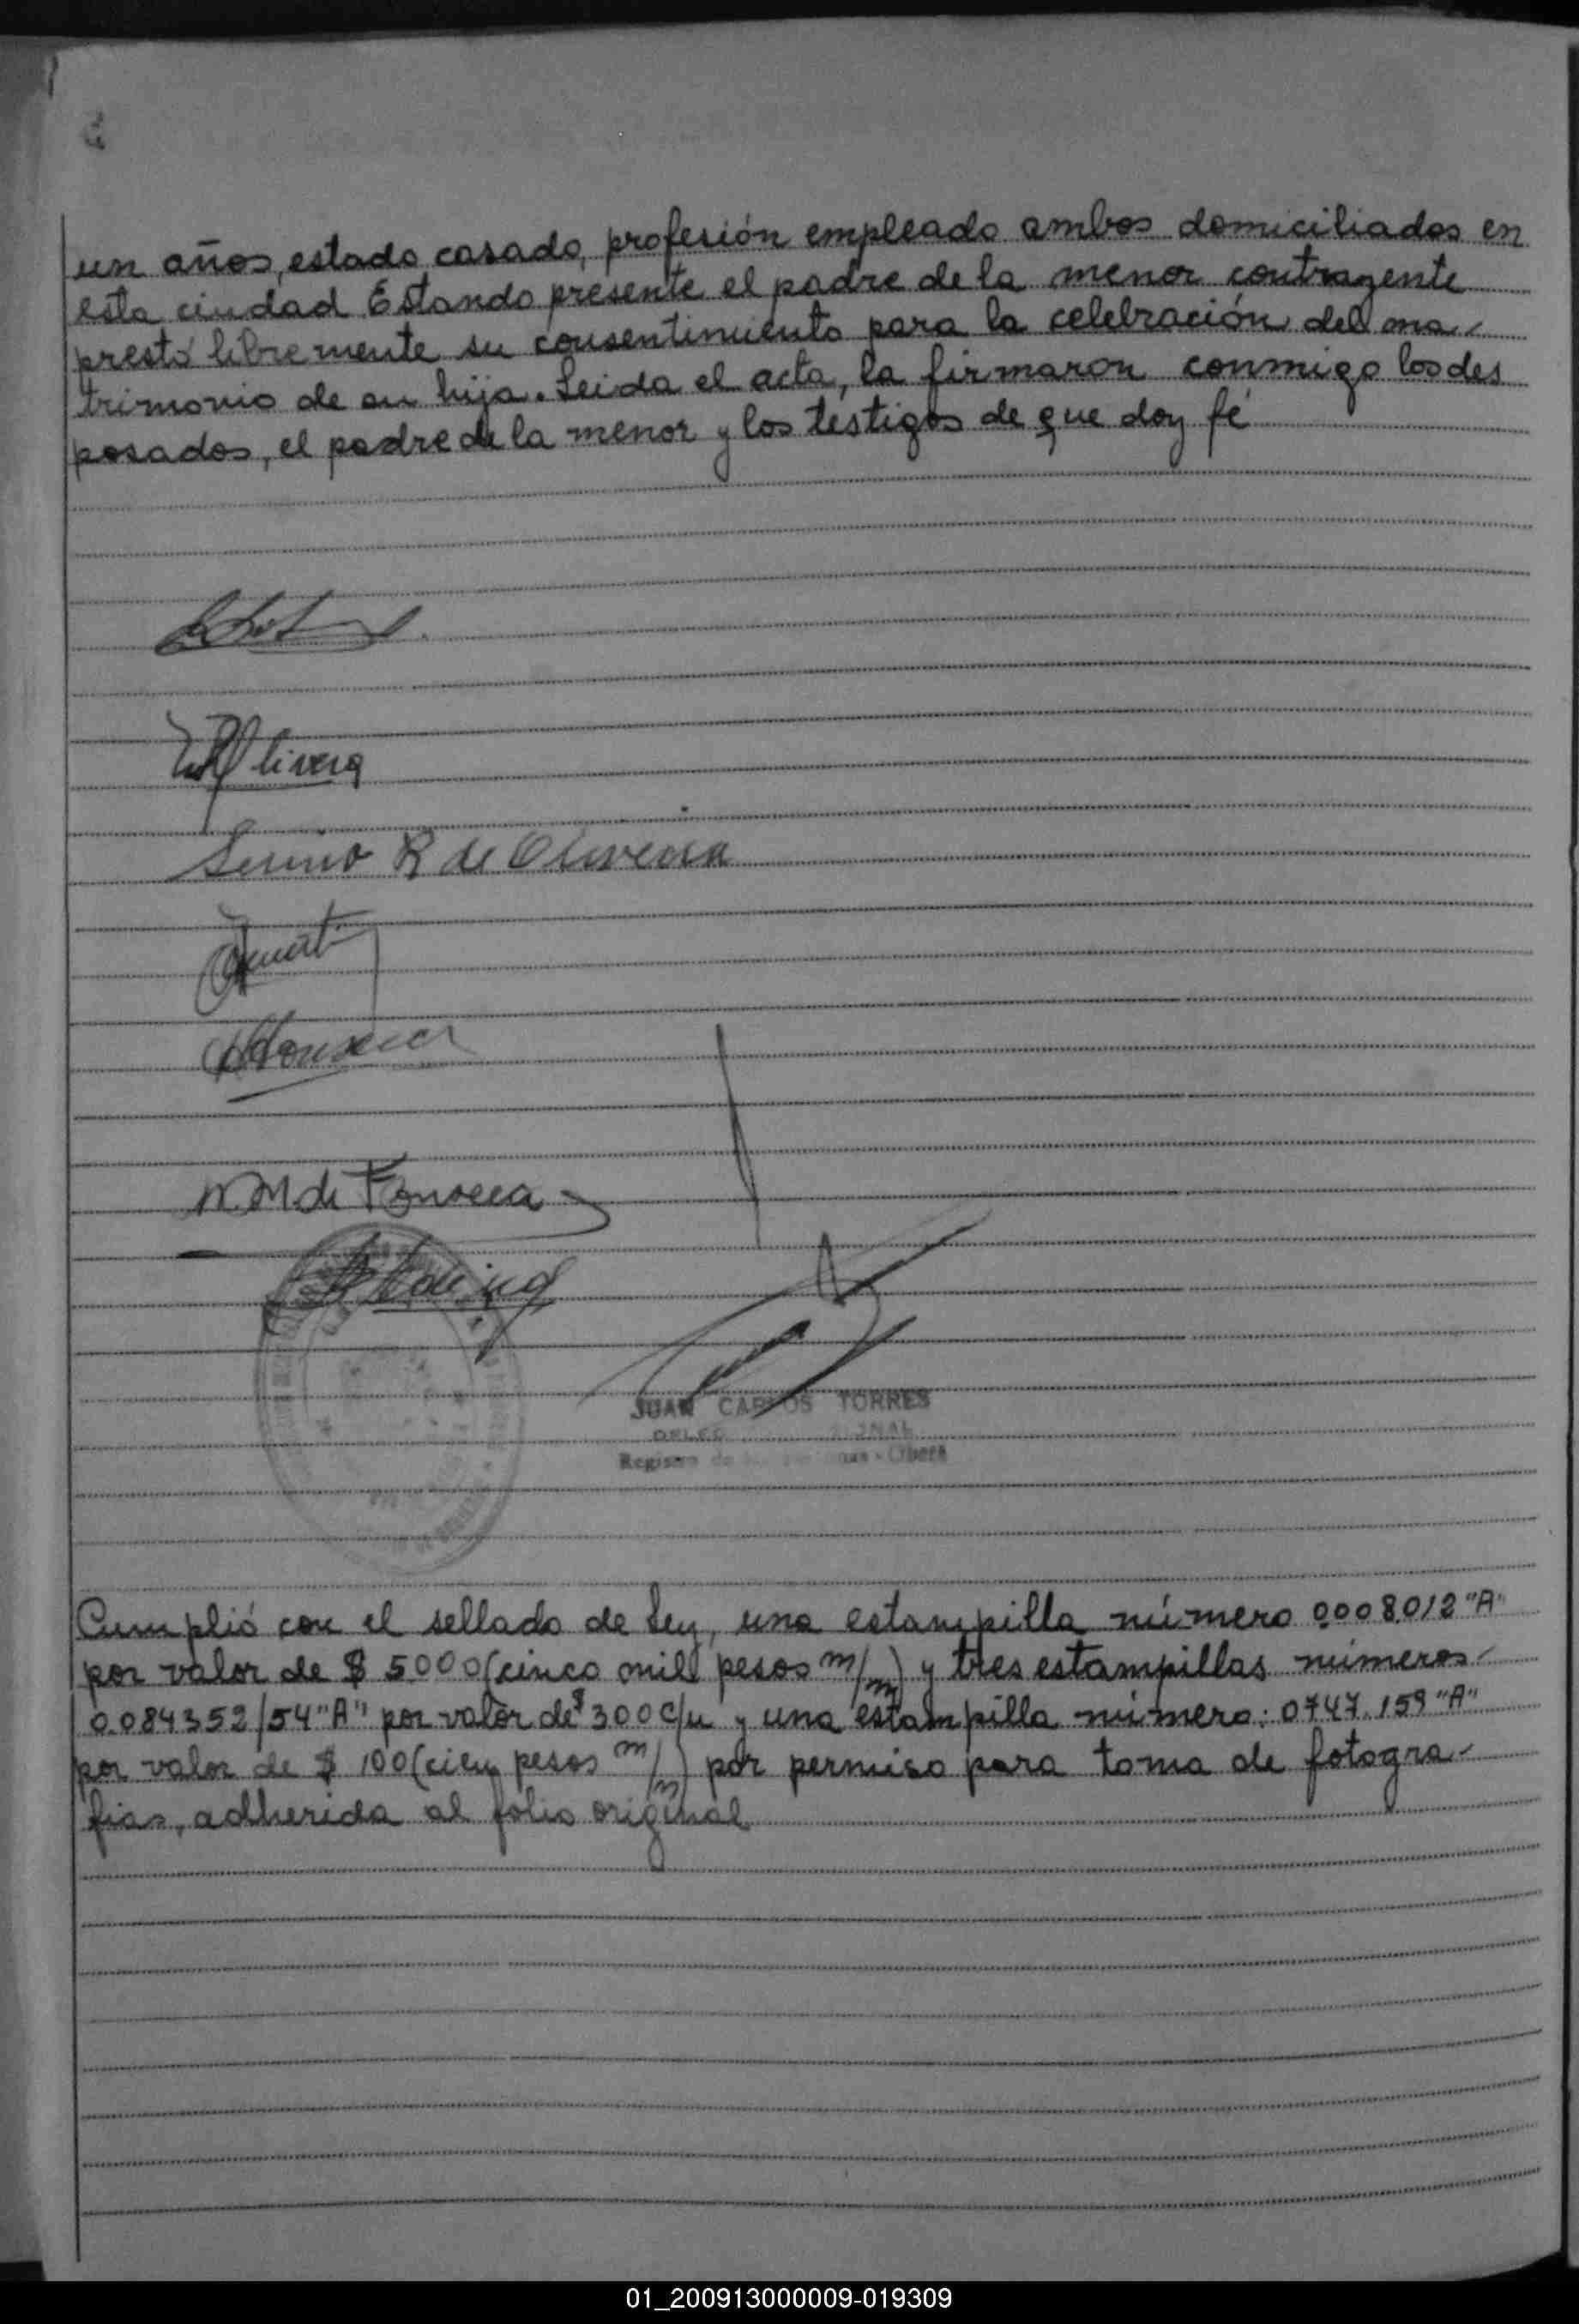 un años, estado casado, profesión empleado ambos domiciliados en
esta ciudad Estando presente el padre de la menor contrayente
prestó libremente su consentimiento para la celebración del ma-
trimonio de su hija. Leida el acta, la firmaron conmigo los des
posados, el padre de la menor y los testigos de que doy fé
Olivera
R de Oliveira
N. M. de Fonseca
JUAN CARLOS TORRES
Registro
Cumplió con el sellado de Ley, una estampilla número 0008012 "A"
por valor de $ 5000 (cinco mil pesos m/m) y tres estampillas números
0084352/54 "A" por valor de $ 300 c/u y una estampilla número: 0747.159 "A"
por valor de $ 100 (cien pesos m/m) por permiso para toma de fotogra-
fias, adherida al folio original
01_200913000009-019309